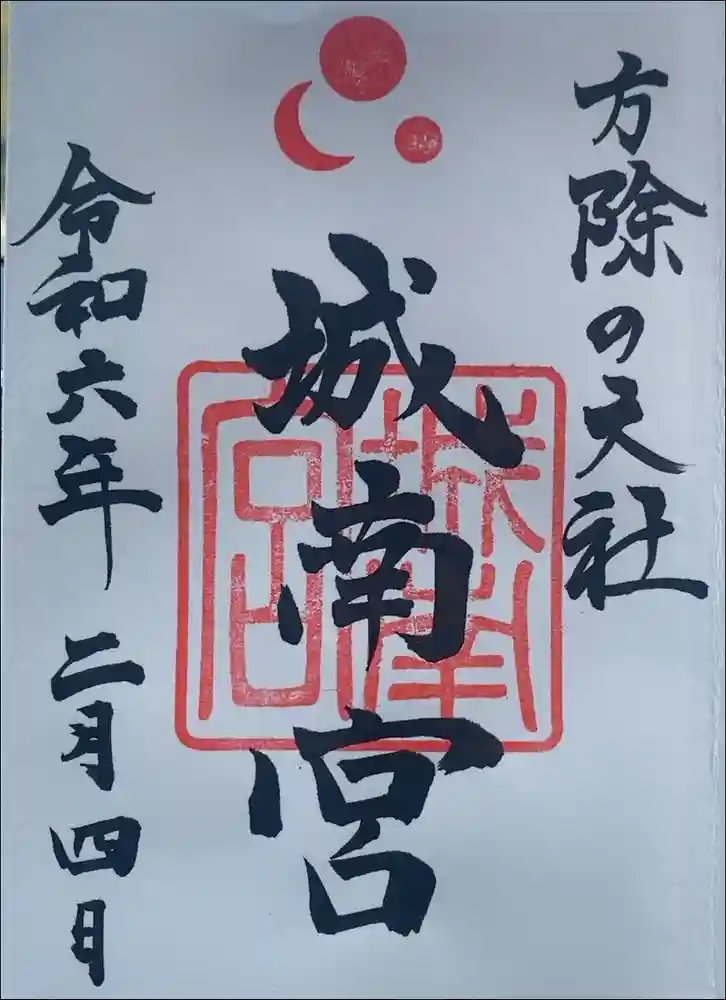 方除の大社
城南宮
城南宮
令和六年 二月四日